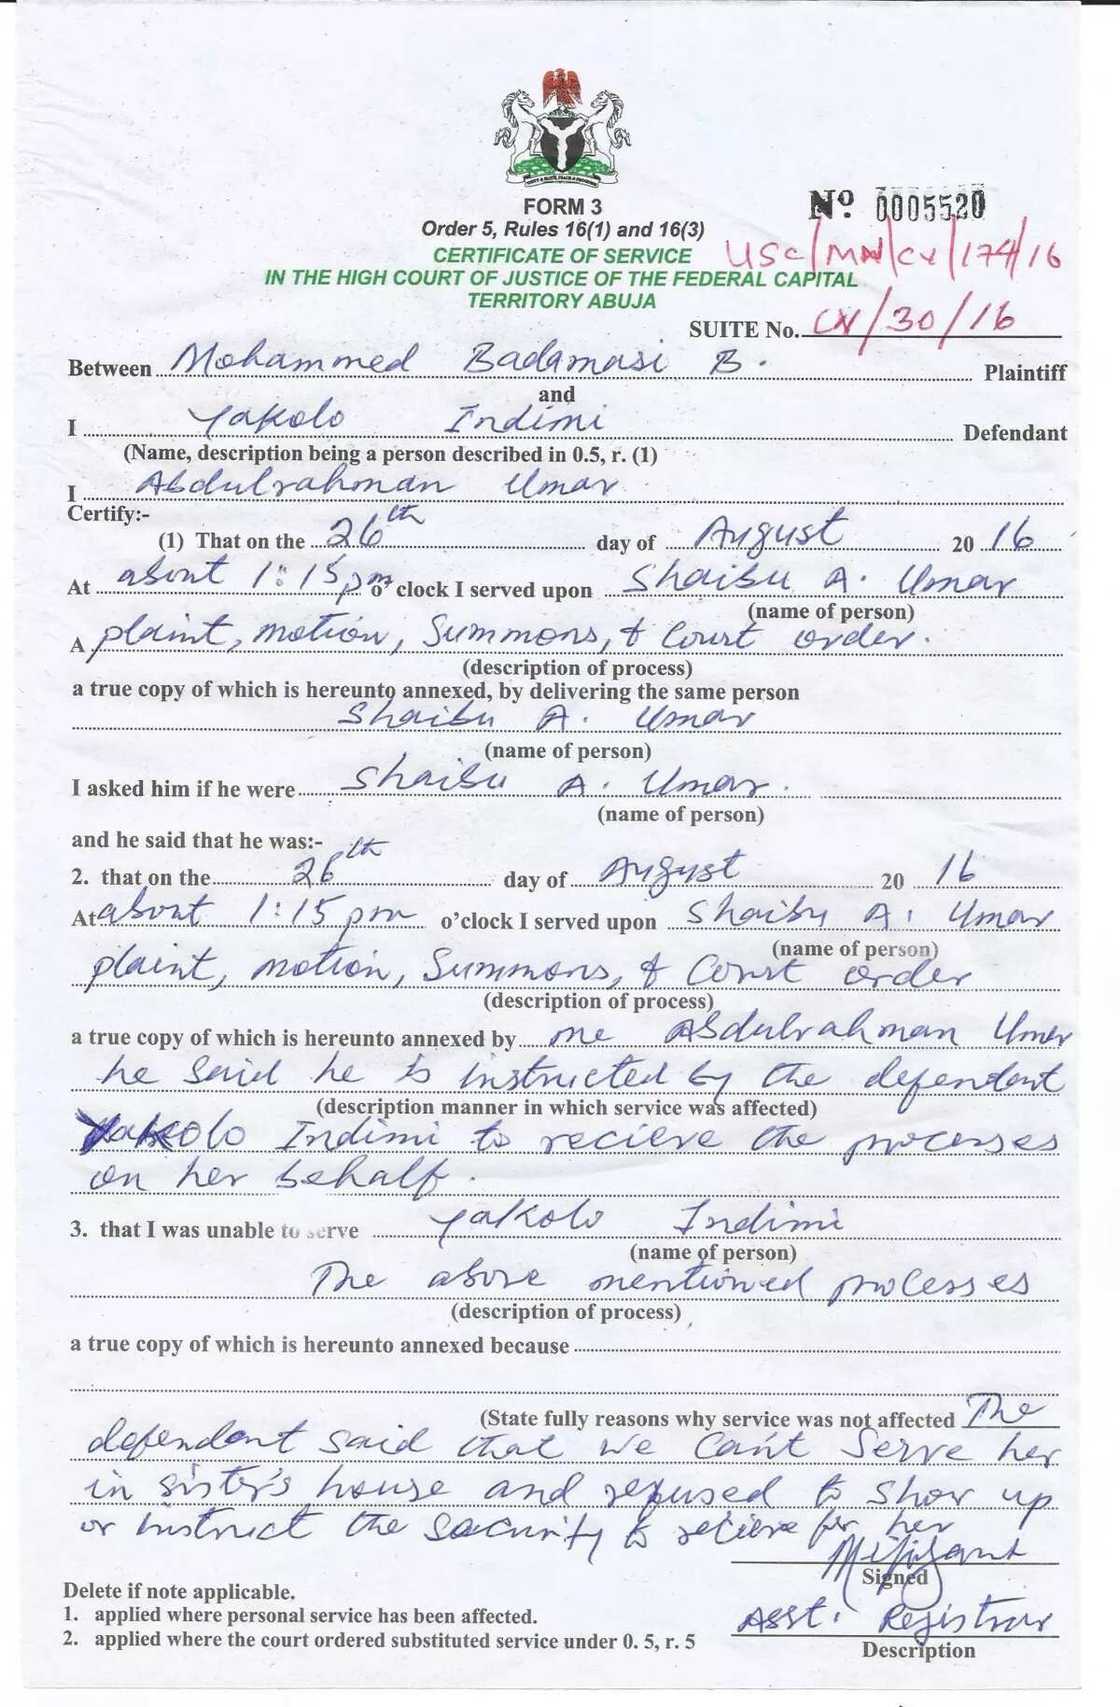 FORM 3
Nº 0005520
Order 5, Rules 16(1) and 16(3)
CERTIFICATE OF SERVICE
USC/MN/CV/174/16
IN THE HIGH COURT OF JUSTICE OF THE FEDERAL CAPITAL
TERRITORY ABUJA
SUITE No. CV/30/16
Between Mohammed Badamasi B. Plaintiff
and
I Yakolo Indimi Defendant
(Name, description being a person described in 0.5, r. (1)
I Abdulrahman Umar
Certify:-
(1) That on the 26th day of August 20 16
At about 1:15pm o'clock I served upon Shaibu A. Umar
(name of person)
A plaint, motion, Summons, & Court order.
(description of process)
a true copy of which is hereunto annexed, by delivering the same person
Shaibu A. Umar
(name of person)
I asked him if he were Shaibu A. Umar.
(name of person)
and he said that he was:-
2. that on the 26th day of August 20 16
At about 1:15pm o'clock I served upon Shaibu A. Umar
(name of person)
plaint, motion, Summons, & Court order
(description of process)
a true copy of which is hereunto annexed by me Abdulrahman Umar
he said he is instructed by the defendant
(description manner in which service was affected)
Yakolo Indimi to recieve the processes
on her behalf.
3. that I was unable to serve Yakolo Indimi
(name of person)
The above mentioned processes
(description of process)
a true copy of which is hereunto annexed because
(State fully reasons why service was not affected The
defendant said that we can't serve her
in sister's house and refused to show up
or instruct the security to recieve for her
Signed
Delete if note applicable.
1. applied where personal service has been affected.
Asst. Registrar
2. applied where the court ordered substituted service under 0. 5, r. 5
Description